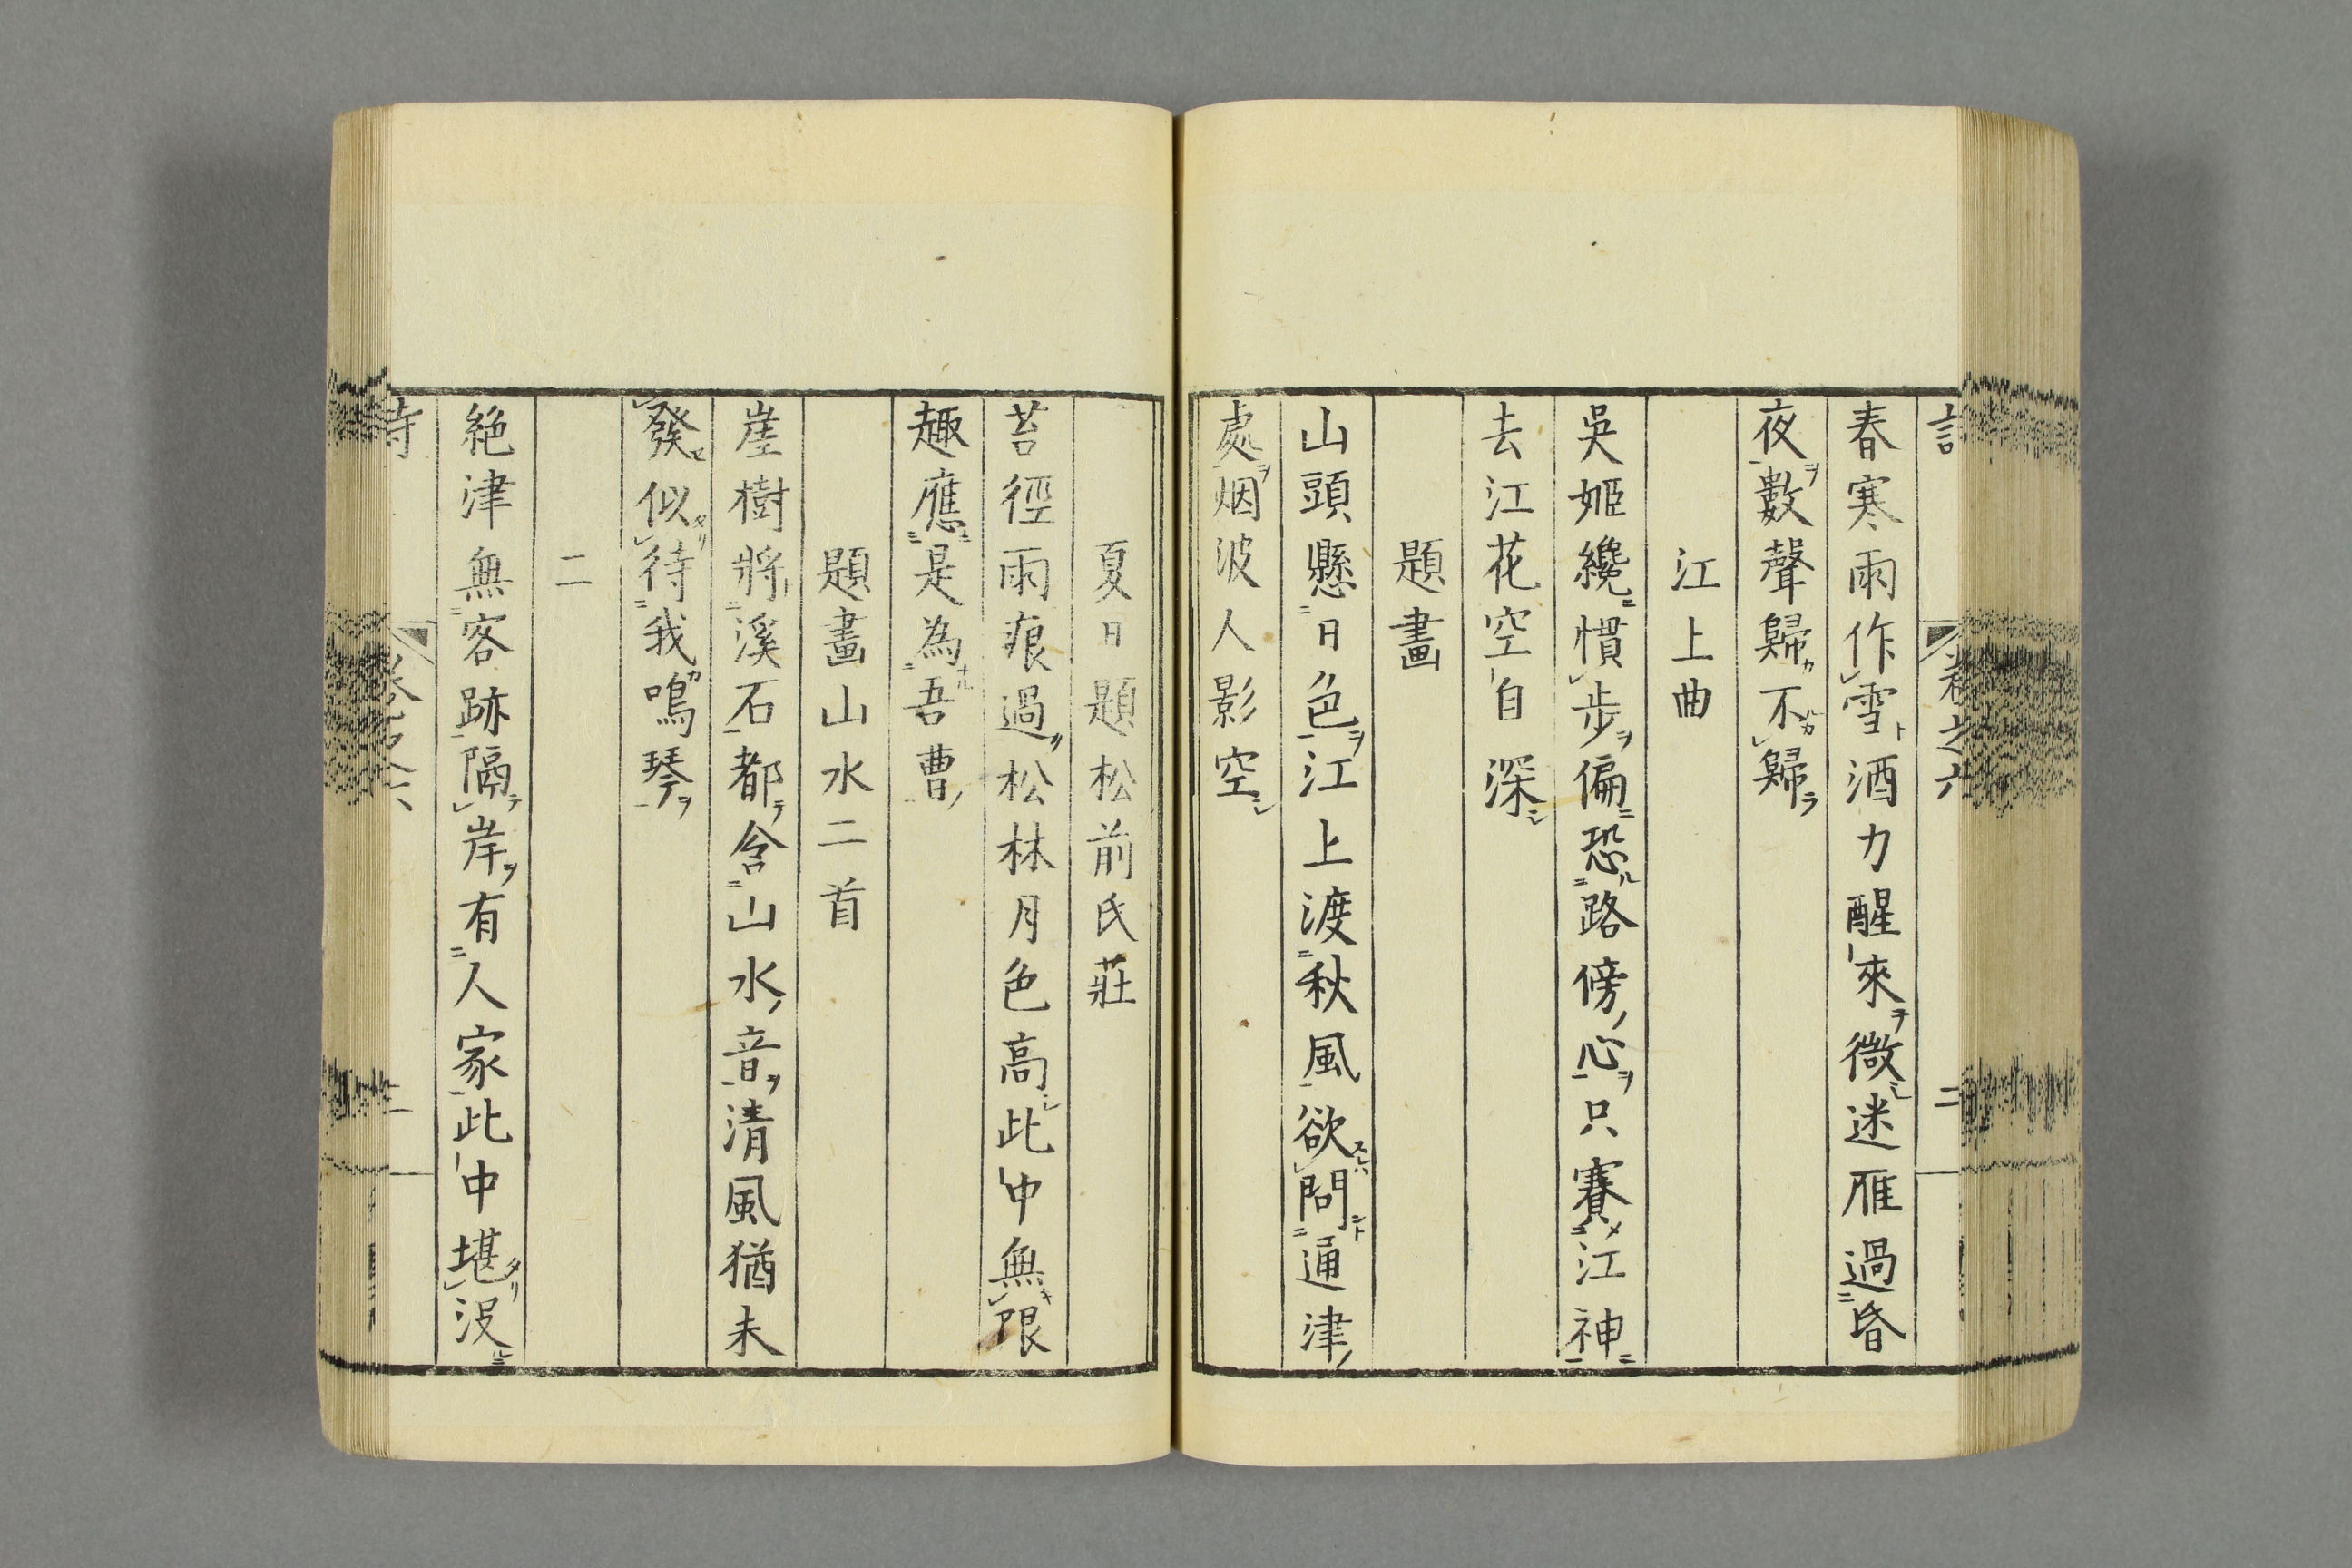 卷之六 二
春寒雨作雪酒力醒來微迷雁過昏
夜數聲歸不歸
江上曲
吳姬纔慣步偏恐路傍心只賽江神
去江花空自深
題畫
山頭懸日色江上渡秋風欲問通津
處烟波人影空
夏日題松前氏莊
苔徑雨痕過松林月色高此中無限
趣應是為吾曹
題畫山水二首
崖樹將溪石都含山水音清風猶未
發似待我鳴琴
二
絕津無客跡隔岸有人家此中堪沒